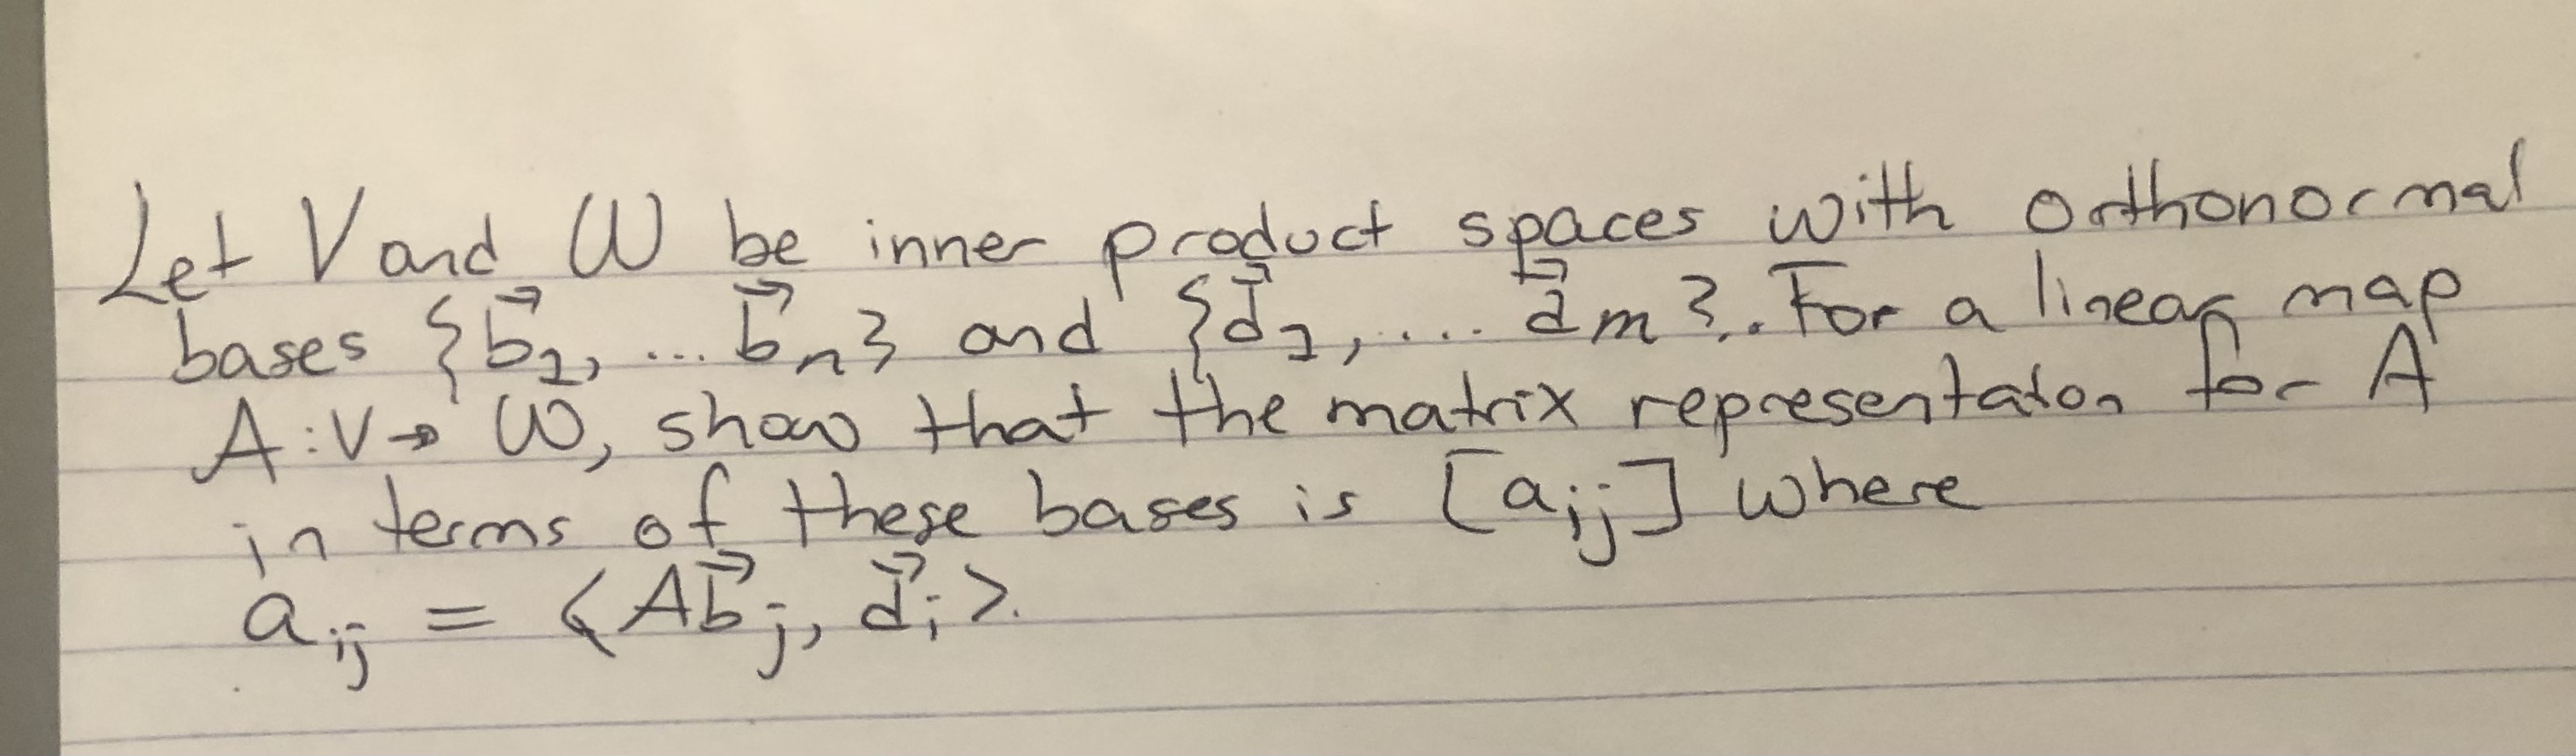 Let V and W be inner product spaces with orthonormal
bases {b⃗₁, ... b⃗ₙ} and {d⃗₁, .... d⃗ₘ}. For a linear map
A : V → W, show that the matrix representaton for A
in terms of these bases is [aᵢⱼ] where
aᵢⱼ = ⟨Ab⃗ⱼ, d⃗ᵢ⟩.